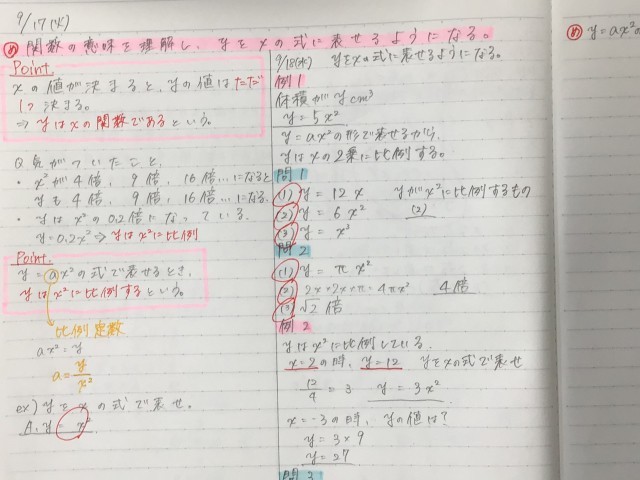 9/17(火)
め 関数の意味を理解し、yをxの式に表せるようになる。
Point.
xの値が決まると、yの値はただ
1つ決まる。
⇒ yはxの関数であるという。
Q 気がついたこと、
・x²が4倍、9倍、16倍…になると
yも4倍、9倍、16倍…になる。
・yはx²の0.2倍になっている。
y=0.2x² ⇒ yはx²に比例
Point.
y=ax²の式で表せるとき、
yはx²に比例するという。
比例定数
ax²=y
a=y/x²
ex) yをxの式で表せ。
A. y=x²
9/18(水) yをxの式に表せるようになる。
例1
体積がy cm³
y=5x²
y=ax²の形で表せるから、
yはxの2乗に比例する。
問1
(1) y=12x yがx²に比例するもの
(2) y=6x² (2)
(3) y=x³
問2
(1) y=πx²
(2) 2x×2x×π=4πx² 4倍
(3) √2倍
例2
yはx²に比例している。
x=2の時、y=12 yをxの式で表せ
12/4=3 y=3x²
x=-3の時、yの値は?
y=3×9
y=27
問3
め y=ax²